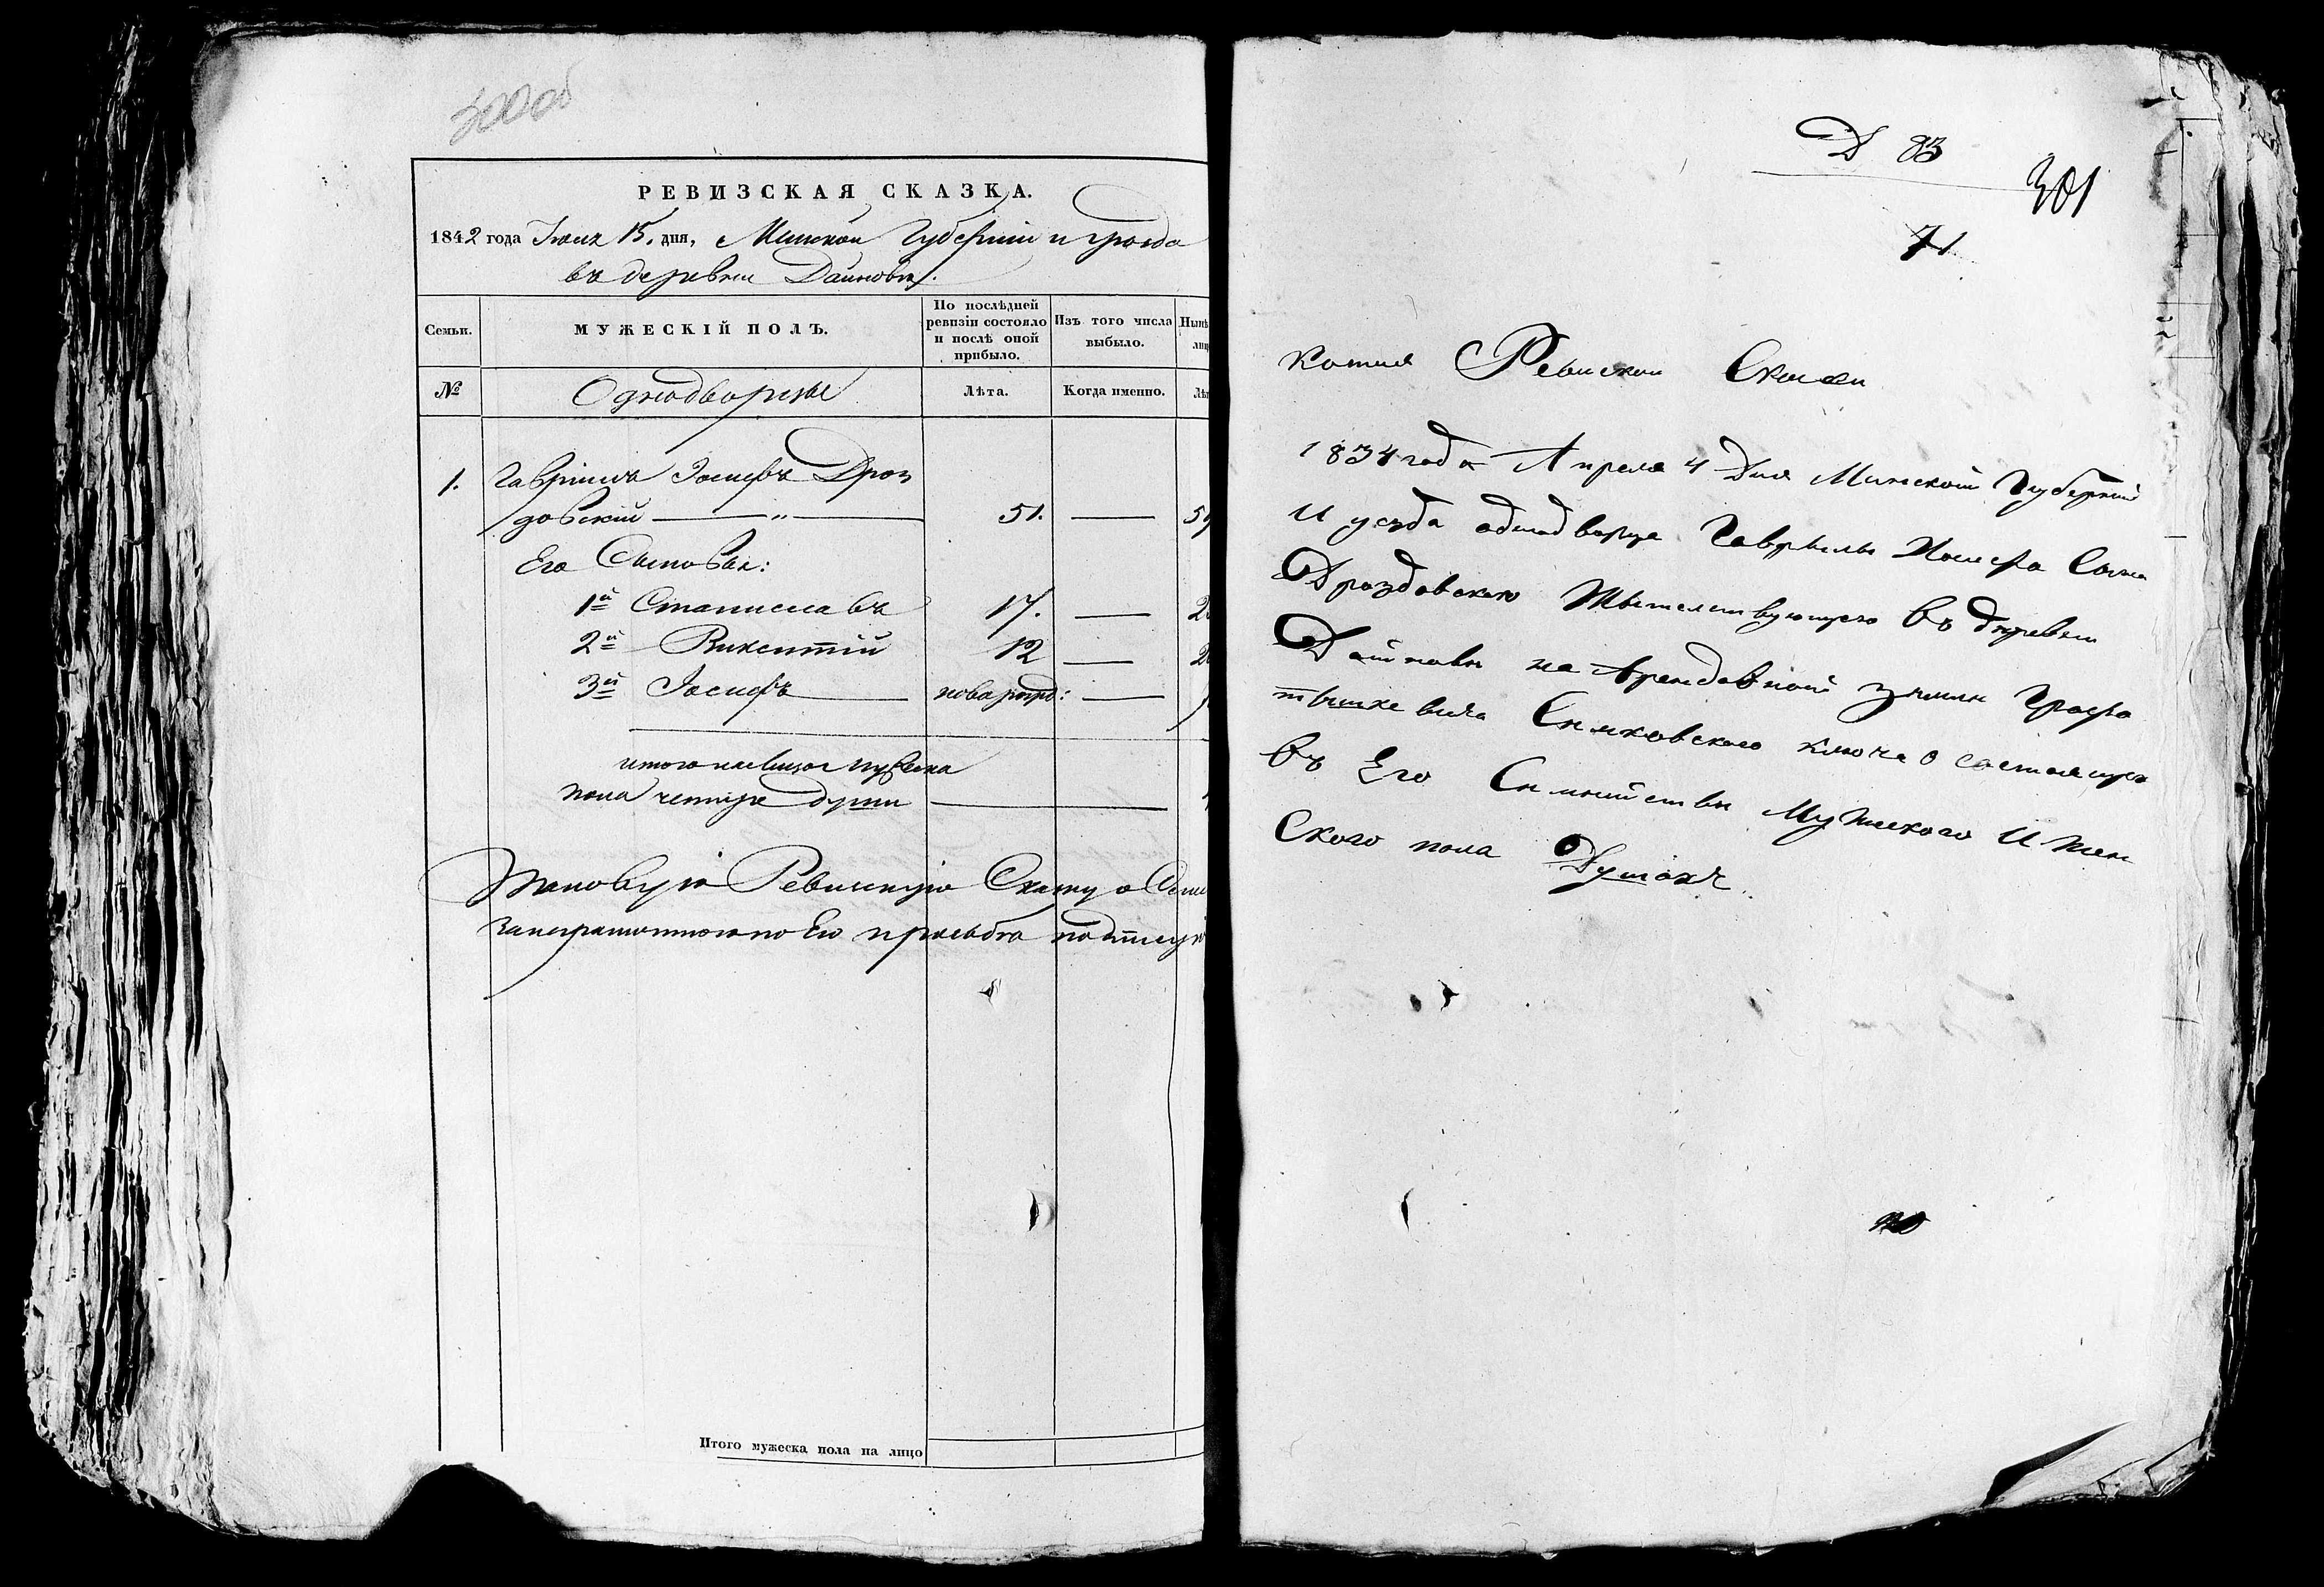 300об
РЕВИЗСКАЯ СКАЗКА.
1842 года Iюля 15. дня, Минской Губернiи и уезда
въ деревни Дайновы.
Семьи.
МУЖЕСКIЙ ПОЛЪ.
По послѣдней ревизiи состояло и послѣ оной прибыло.
Изъ того числа выбыло.
№
Однодворцы
Лѣта.
Когда именно.
1. Гаврiилъ Iосифъ Дроз
довскiй — " — 51. —
Его Сыновья:
1й Станиславъ 17. —
2й Викентiй 12 —
3й Iосифъ — новорожд: —
итого налицо мужеска
пола четыре души —
Таковую Ревискую Скаску о
за неграмотного по Его прозьба подпису
Итого мужеска пола на лицо
Д 83
301
71
Копия Ревиской Скаски
1834 года Апреля 4 Дня Минской Губернии
И уезда однодворца Гаврыилы Иосифа Сына
Дроздовского Жытельствующего въ деревни
Дайновы на Арендовной земли Графа
тышкевича Ключа о состоящих
въ Его Симийствы Мужеского И жен
Ского пола Душахъ.